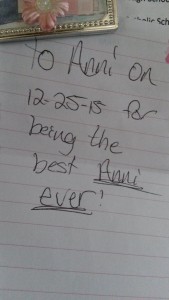 to Anni on
12-25-15 for
being the
best Anni
ever!